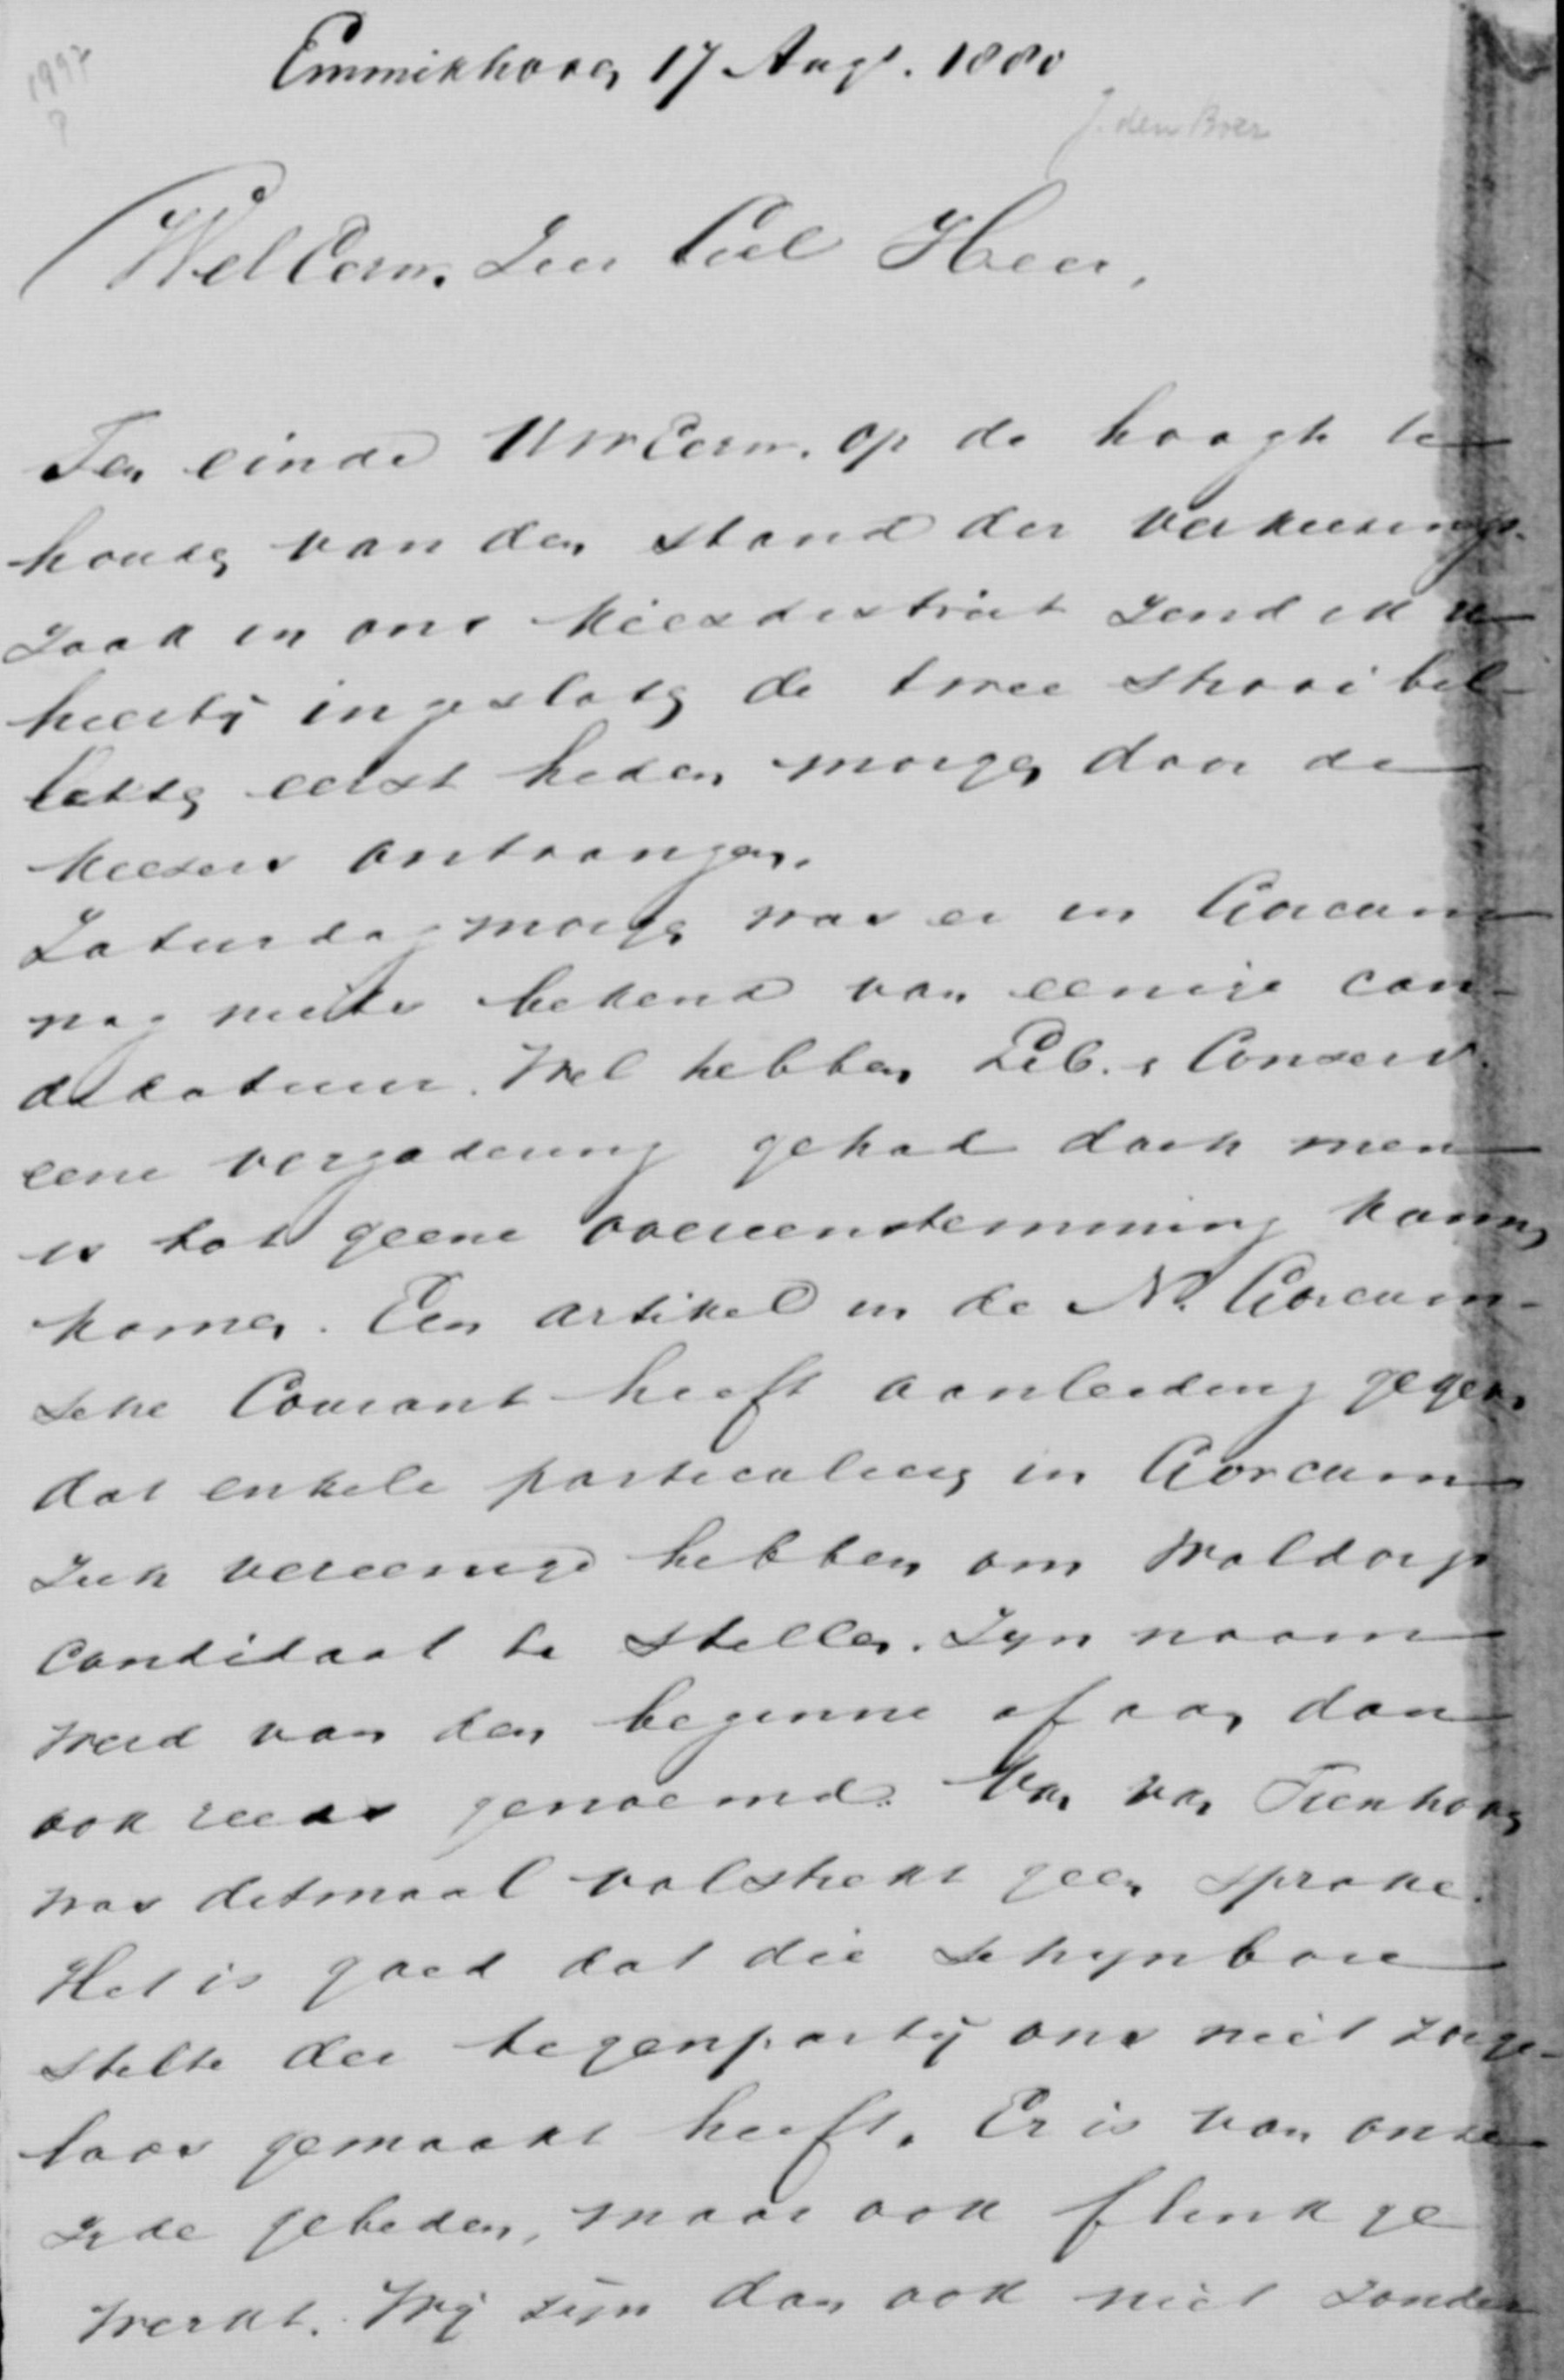 1997
?
Emmikhoven 17 Augt. 1880
J. den Boer
WelEerw. Zeer Gel Heer,
Ten einde UwEerw. op de hoogte te
houden van den stand der verkiezings-
zaak in ons Kiesdistrict zend ik u
hierbij ingesloten de twee strooibil-
letten eerst heden morgen door de
kiezers ontvangen.
Zaturdag morgen was er in Gorcum
nog niets bekend van eenige can-
didatuur. Wel hebben Lib. & Conserv.
eene vergadering gehad doch men
is tot geene overeenstemming kunnen
komen. Een artikel in de N. Gorcum-
sche Courant heeft aanleiding gegeven
dat enkele particulieren in Gorcum
zich vereenigd hebben om Waldorp
Candidaat te stellen. Zyn naam
werd van den beginne af aan dan
ook reeds genoemd. Van van Tienhoven
was ditmaal volstrekt geen sprake.
Het is goed dat die schynbare
stilte der tegenpartij ons niet zorge-
loos gemaakt heeft. Er is van onze
zyde gebeden, maar ook flink ge
werkt. Wij zijn dan ook niet zonder